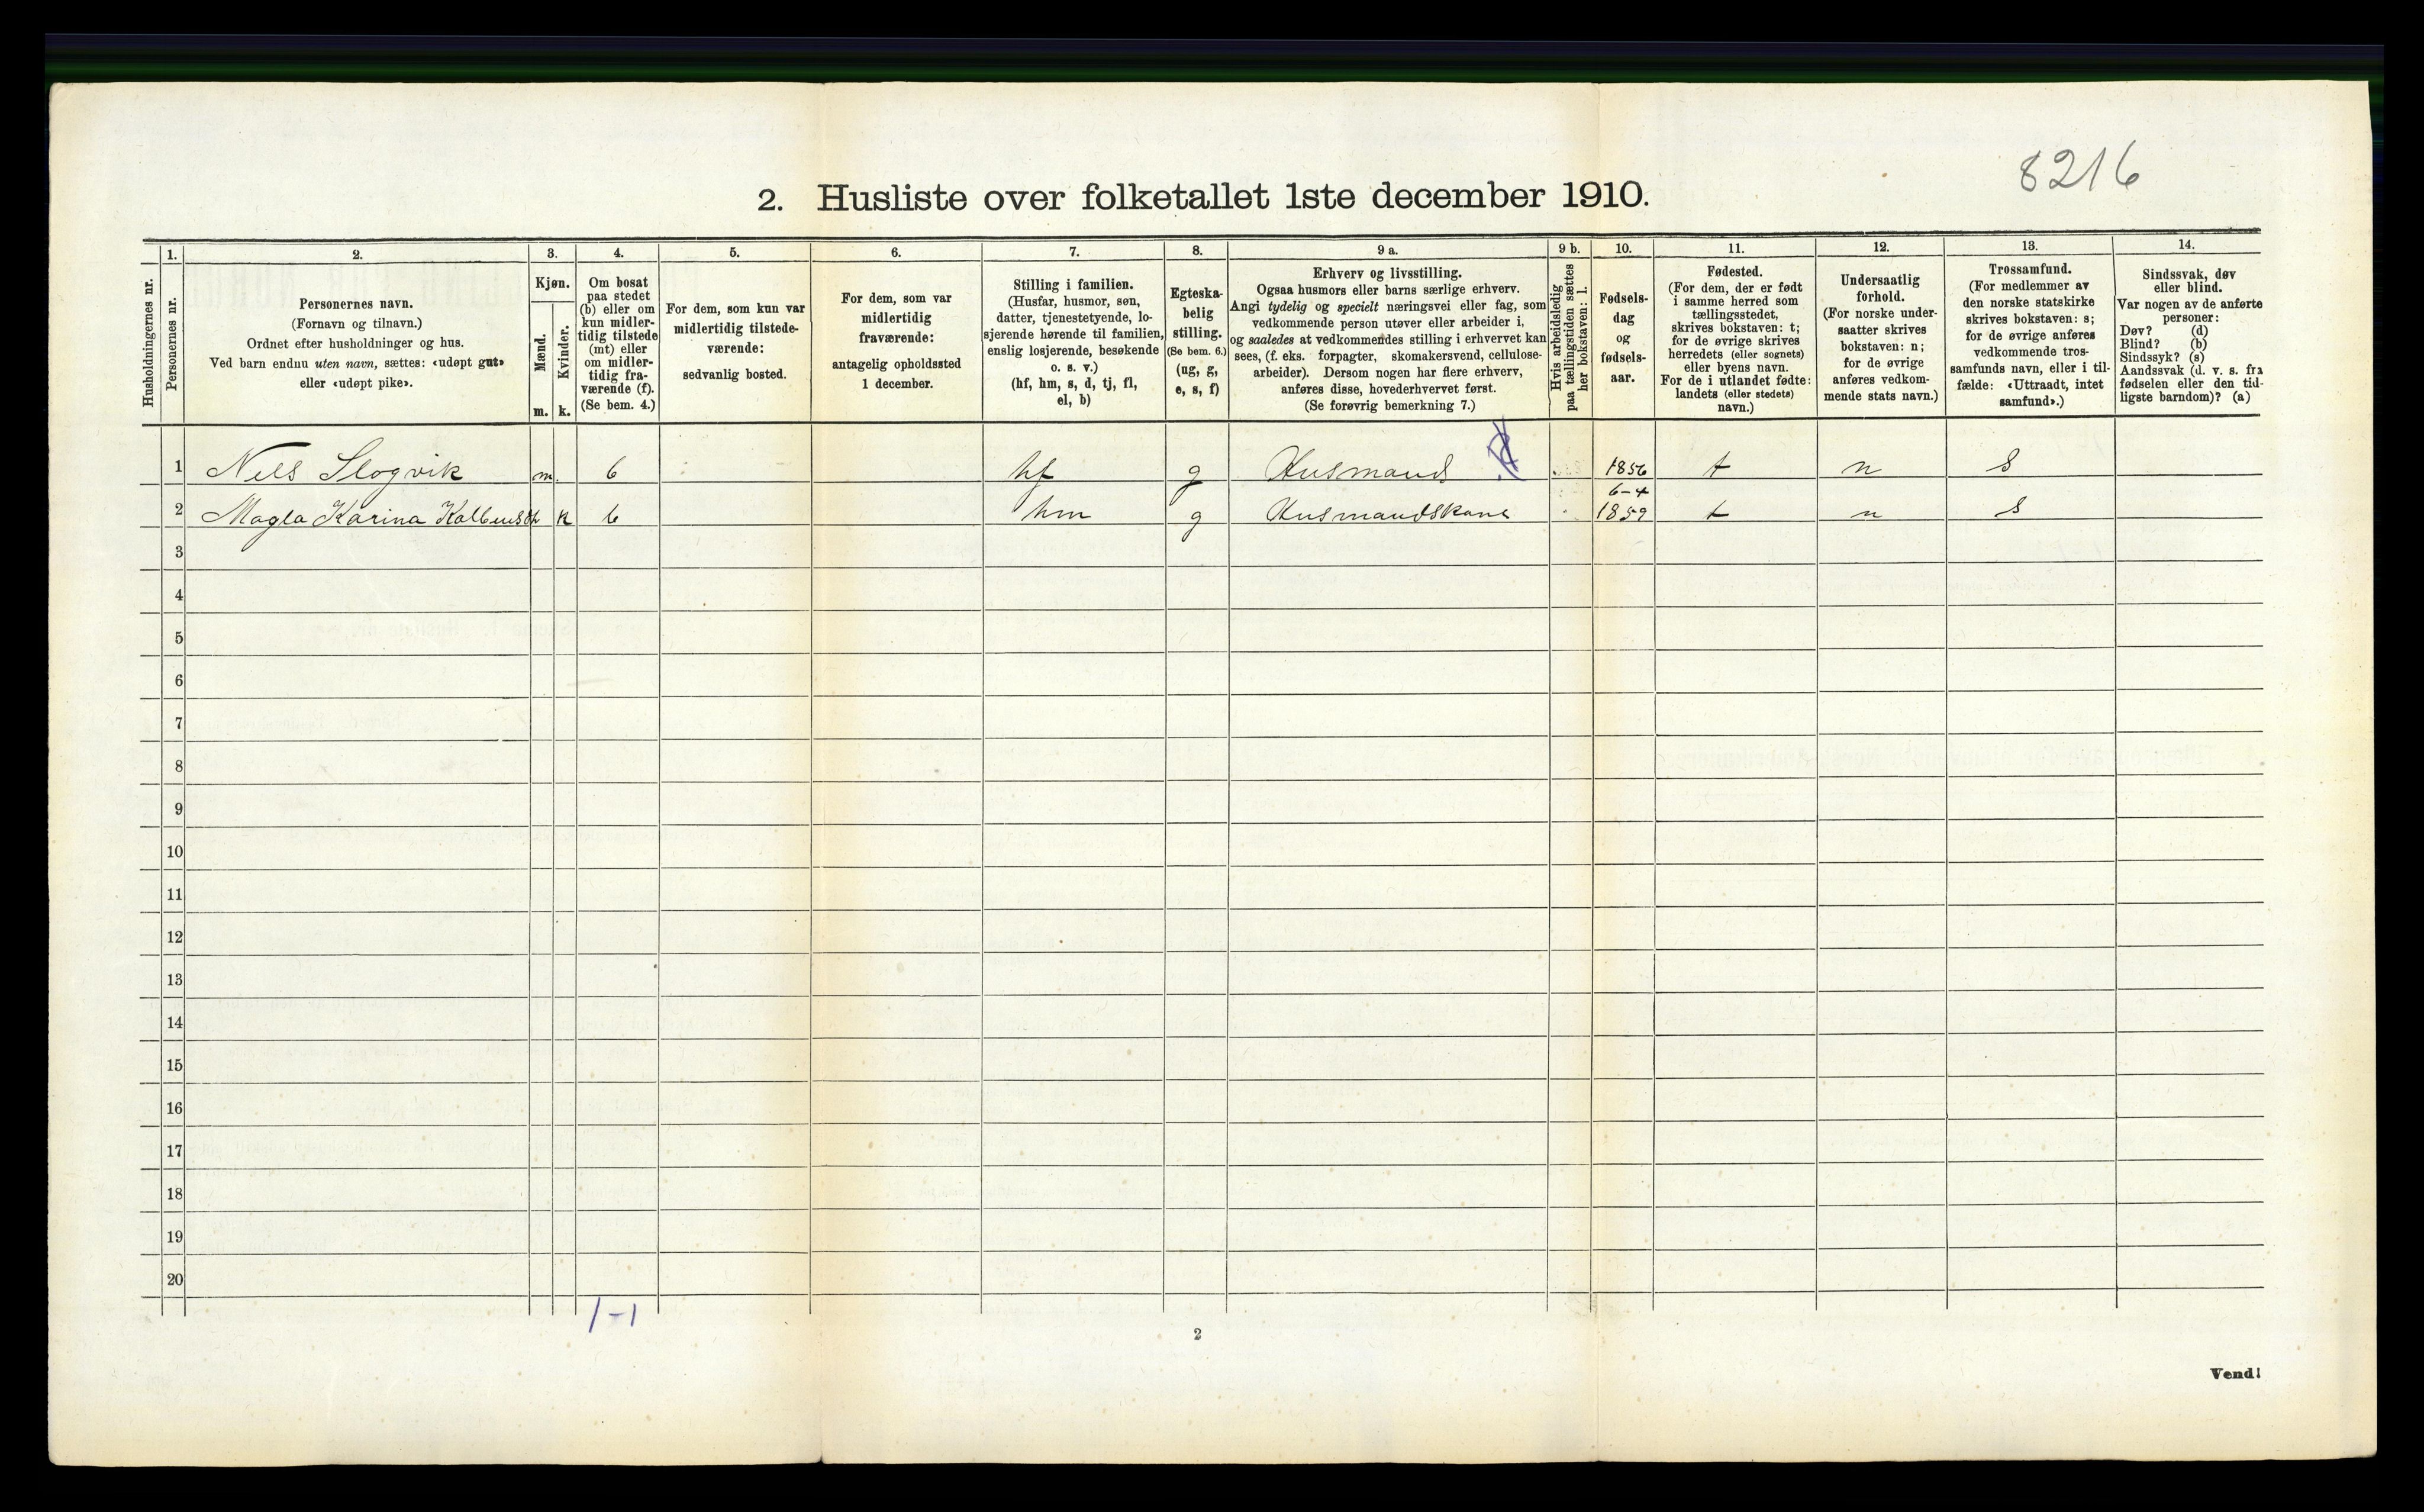 8216
2. Husliste over folketallet 1ste december 1910.
Husholdningernes nr.
1.
Personernes nr.
2.
Personernes navn.
(Fornavn og tilnavn.)
Ordnet efter husholdninger og hus.
Ved barn endnu uten navn, sættes: «udøpt gut»
eller «udøpt pike».
3.
Kjøn.
Mænd.
m.
Kvinder.
k.
4.
Om bosat
paa stedet
(b) eller om
kun midler-
tidig tilstede
(mt) eller
om midler-
tidig fra-
værende (f).
(Se bem. 4.)
5.
For dem, som kun var
midlertidig tilstede-
værende:
sedvanlig bosted.
6.
For dem, som var
midlertidig
fraværende:
antagelig opholdssted
1 december.
7.
Stilling i familien.
(Husfar, husmor, søn,
datter, tjenestetyende, lo-
sjerende hørende til familien,
enslig losjerende, besøkende
o. s. v.)
(hf, hm, s, d, tj, fl,
el, b)
8.
Egteska-
belig
stilling.
(Se bem. 6.)
(ug, g,
e, s, f)
9 a.
Erhverv og livsstilling.
Ogsaa husmors eller barns særlige erhverv.
Angi tydelig og specielt næringsvei eller fag, som
vedkommende person utøver eller arbeider i,
og saaledes at vedkommendes stilling i erhvervet kan
sees, (f. eks. forpagter, skomakersvend, cellulose-
arbeider). Dersom nogen har flere erhverv,
anføres disse, hovederhvervet først.
(Se forøvrig bemerkning 7.)
9 b.
Hvis arbeidsledig
paa tællingstiden sættes
her bokstaven: l.
10.
Fødsels-
dag
og
fødsels-
aar.
11.
Fødested.
(For dem, der er født
i samme herred som
tællingsstedet,
skrives bokstaven: t;
for de øvrige skrives
herredets (eller sognets)
eller byens navn.
For de i utlandet fødte:
landets (eller stedets)
navn.)
12.
Undersaatlig
forhold.
(For norske under-
saatter skrives
bokstaven: n;
for de øvrige
anføres vedkom-
mende stats navn.)
13.
Trossamfund.
(For medlemmer av
den norske statskirke
skrives bokstaven: s;
for de øvrige anføres
vedkommende tros-
samfunds navn, eller i til-
fælde: «Uttraadt, intet
samfund».)
14.
Sindssvak, døv
eller blind.
Var nogen av de anførte
personer:
Døv? (d)
Blind? (b)
Sindssyk? (s)
Aandssvak (d. v. s. fra
fødselen eller den tid-
ligste barndom)? (a)
1 Nels Slogvik m. b hf g Husmand 1856 t n s
2 Magla Karina k b hm g Husmandskone 6-4 1859 t n s
3
4
5
6
7
8
9
10
11
12
13
14
15
16
17
18
19
20
1-1
2
Vend!